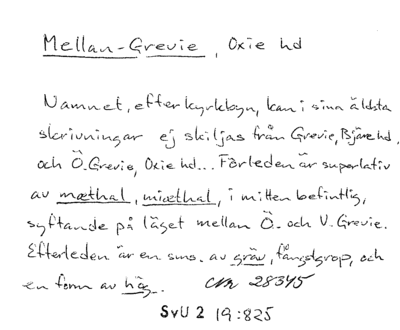 Mellan-Grevie, Oxie hd
Namnet, efter kyrkbyn, kan i sina äldsta
skrivningar ej skiljas från Grevie, Bjäre hd,
och Ö. Grevie, Oxie hd... Förleden är superlativ
av mæthal, miæthal, i mitten befintlig,
syftande på läget mellan Ö. och V. Grevie.
Efterleden är en sms. av gräv, fångstgrop, och
en form av hög. 28345
SvU 2 19:825